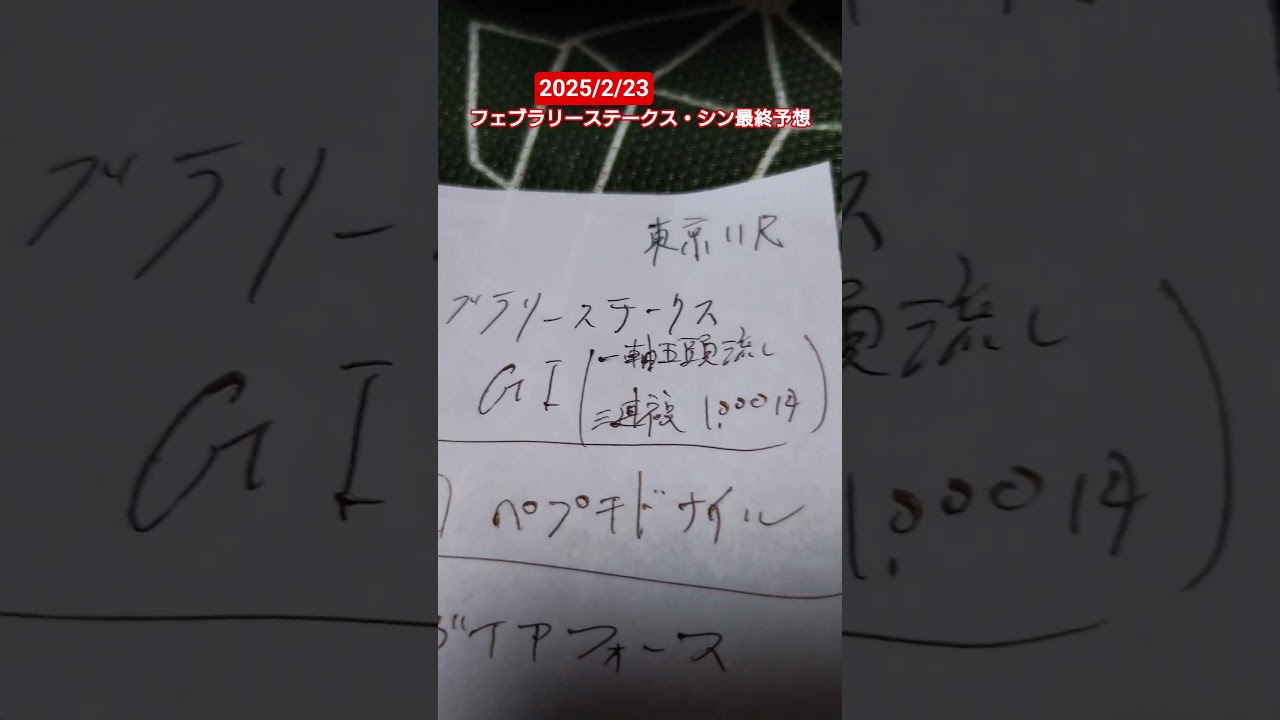 2025/2/23
フェブラリーステークス・シン最終予想
東京11R
ブラリーステークス
GI(一軸五頭流し
三連複 1,000円)
ペプチドナイル
ガイアフォース